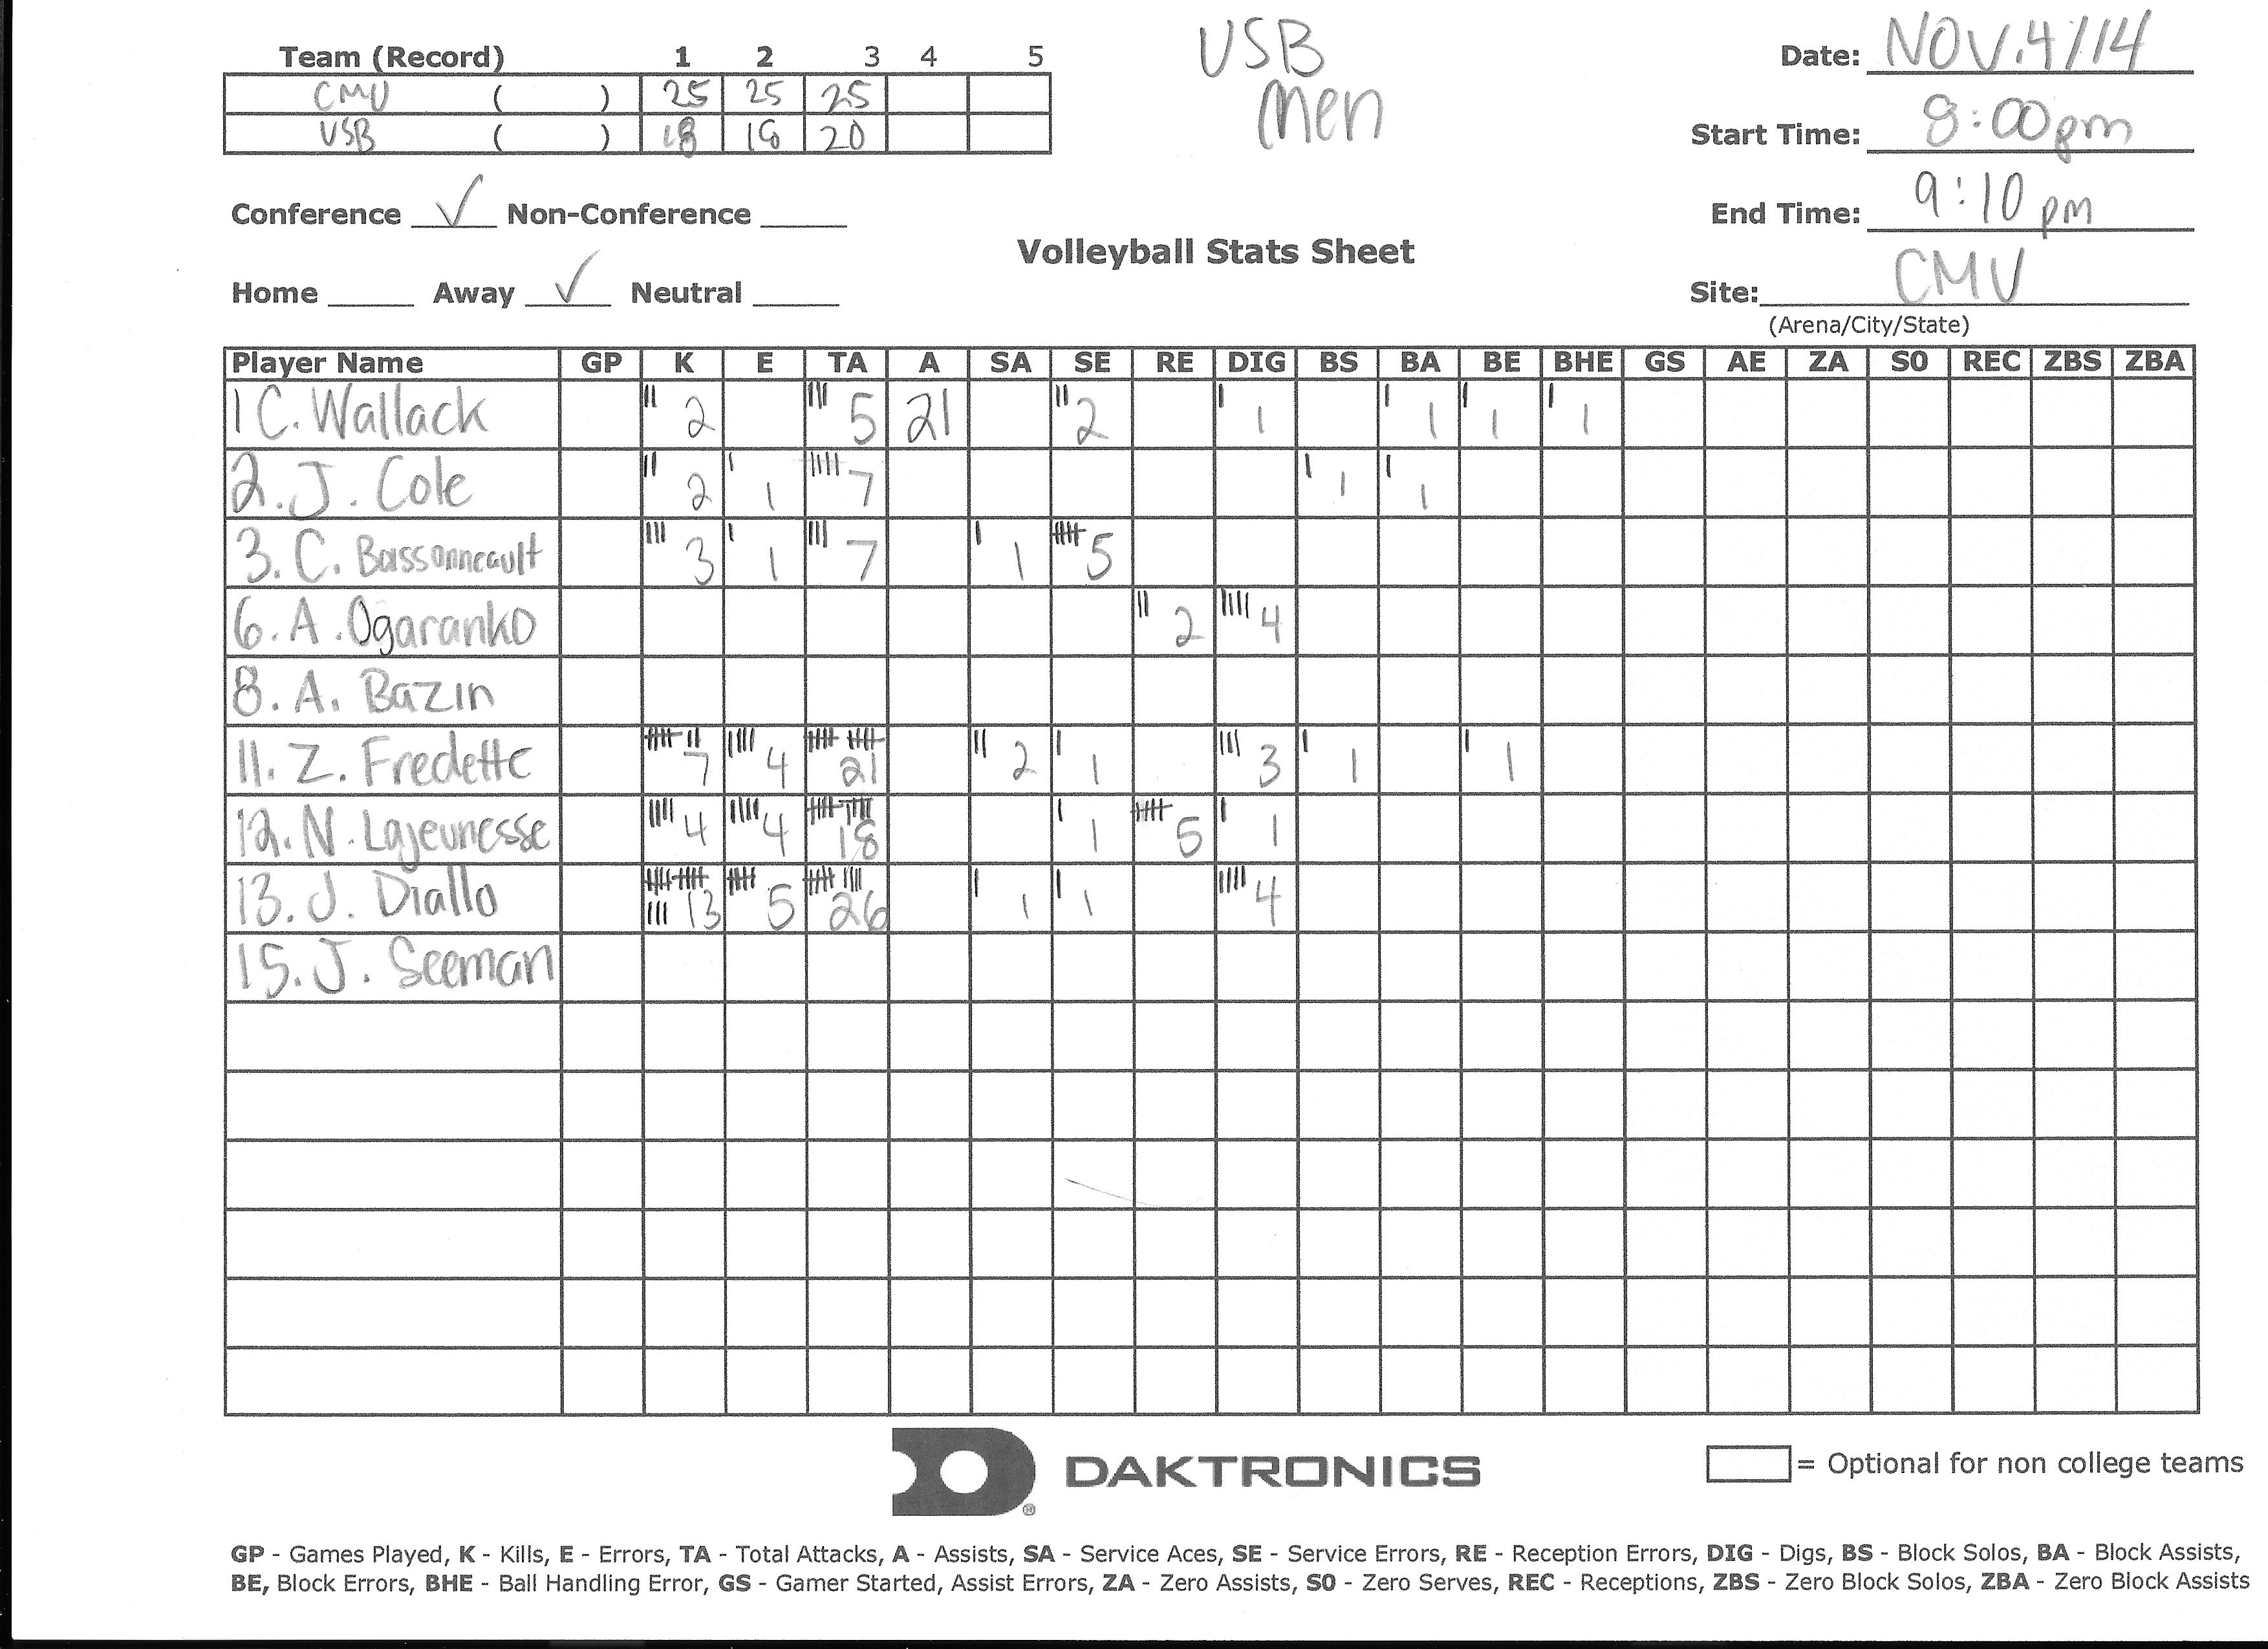 USB
Men
Team (Record) 1 2 3 4 5
CMU ( ) 25 25 25
USB ( ) 18 20
Date: NOV. 4/14
Start Time: 8:00pm
End Time: 9:10 pm
Site: CMU
(Arena/City/State)
Conference ✓ Non-Conference
Home Away ✓ Neutral
Volleyball Stats Sheet
Player Name GP K E TA A SA SE RE DIG BS BA BE BHE GS AE ZA S0 REC ZBS ZBA
1 C. Wallack 2 5 21 2 1 1 1 1
2. J. Cole 2 1 7 1 1
3. C. Boissonneault 3 1 7 1 5
6. A. Ogaranko 2 4
8. A. Bazin
11. Z. Fredette 7 4 21 2 1 3 1 1
12. N. Lajeunesse 4 4 18 1 5 1
13. J. Diallo 13 5 26 1 1 4
15. J. Seeman
DAKTRONICS
®
= Optional for non college teams
GP - Games Played, K - Kills, E - Errors, TA - Total Attacks, A - Assists, SA - Service Aces, SE - Service Errors, RE - Reception Errors, DIG - Digs, BS - Block Solos, BA - Block Assists,
BE, Block Errors, BHE - Ball Handling Error, GS - Gamer Started, Assist Errors, ZA - Zero Assists, S0 - Zero Serves, REC - Receptions, ZBS - Zero Block Solos, ZBA - Zero Block Assists